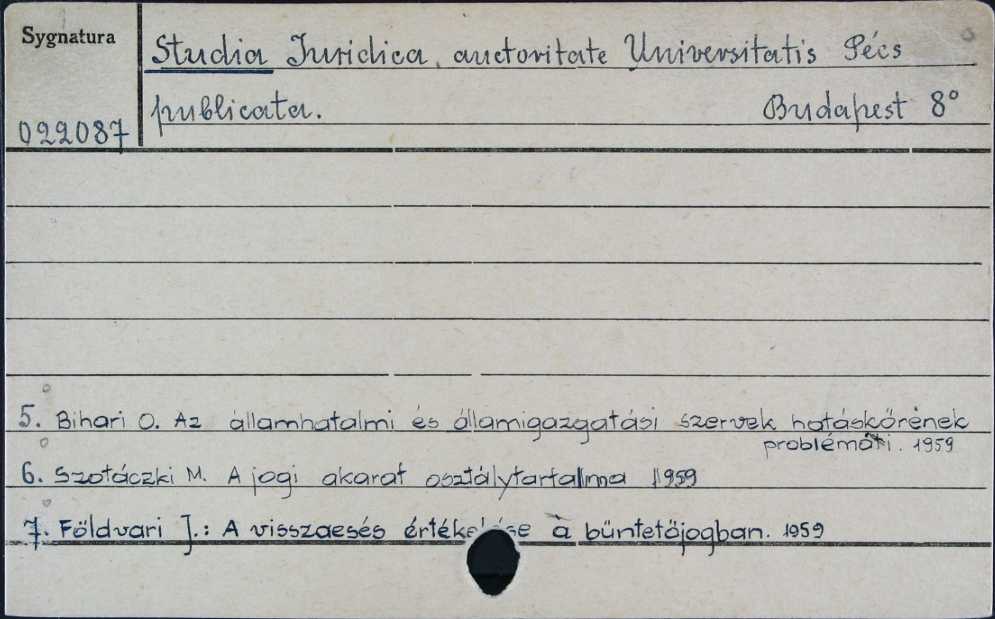 Sygnatura
Studia Juridica, auctoritate Universitatis Pécs
publicata. Budapest 8°
022087
5. Bihari O. Az államhatalmi és államigazgatási szervek hatáskörének
problémái. 1959
6. Szotáczki M. A jogi akarat osztálytartalma 1959
7. Földvari J.: A visszaesés értékelése a büntetöjogban. 1959